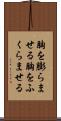 胸を膨らま
せる胸をふ
くらませる